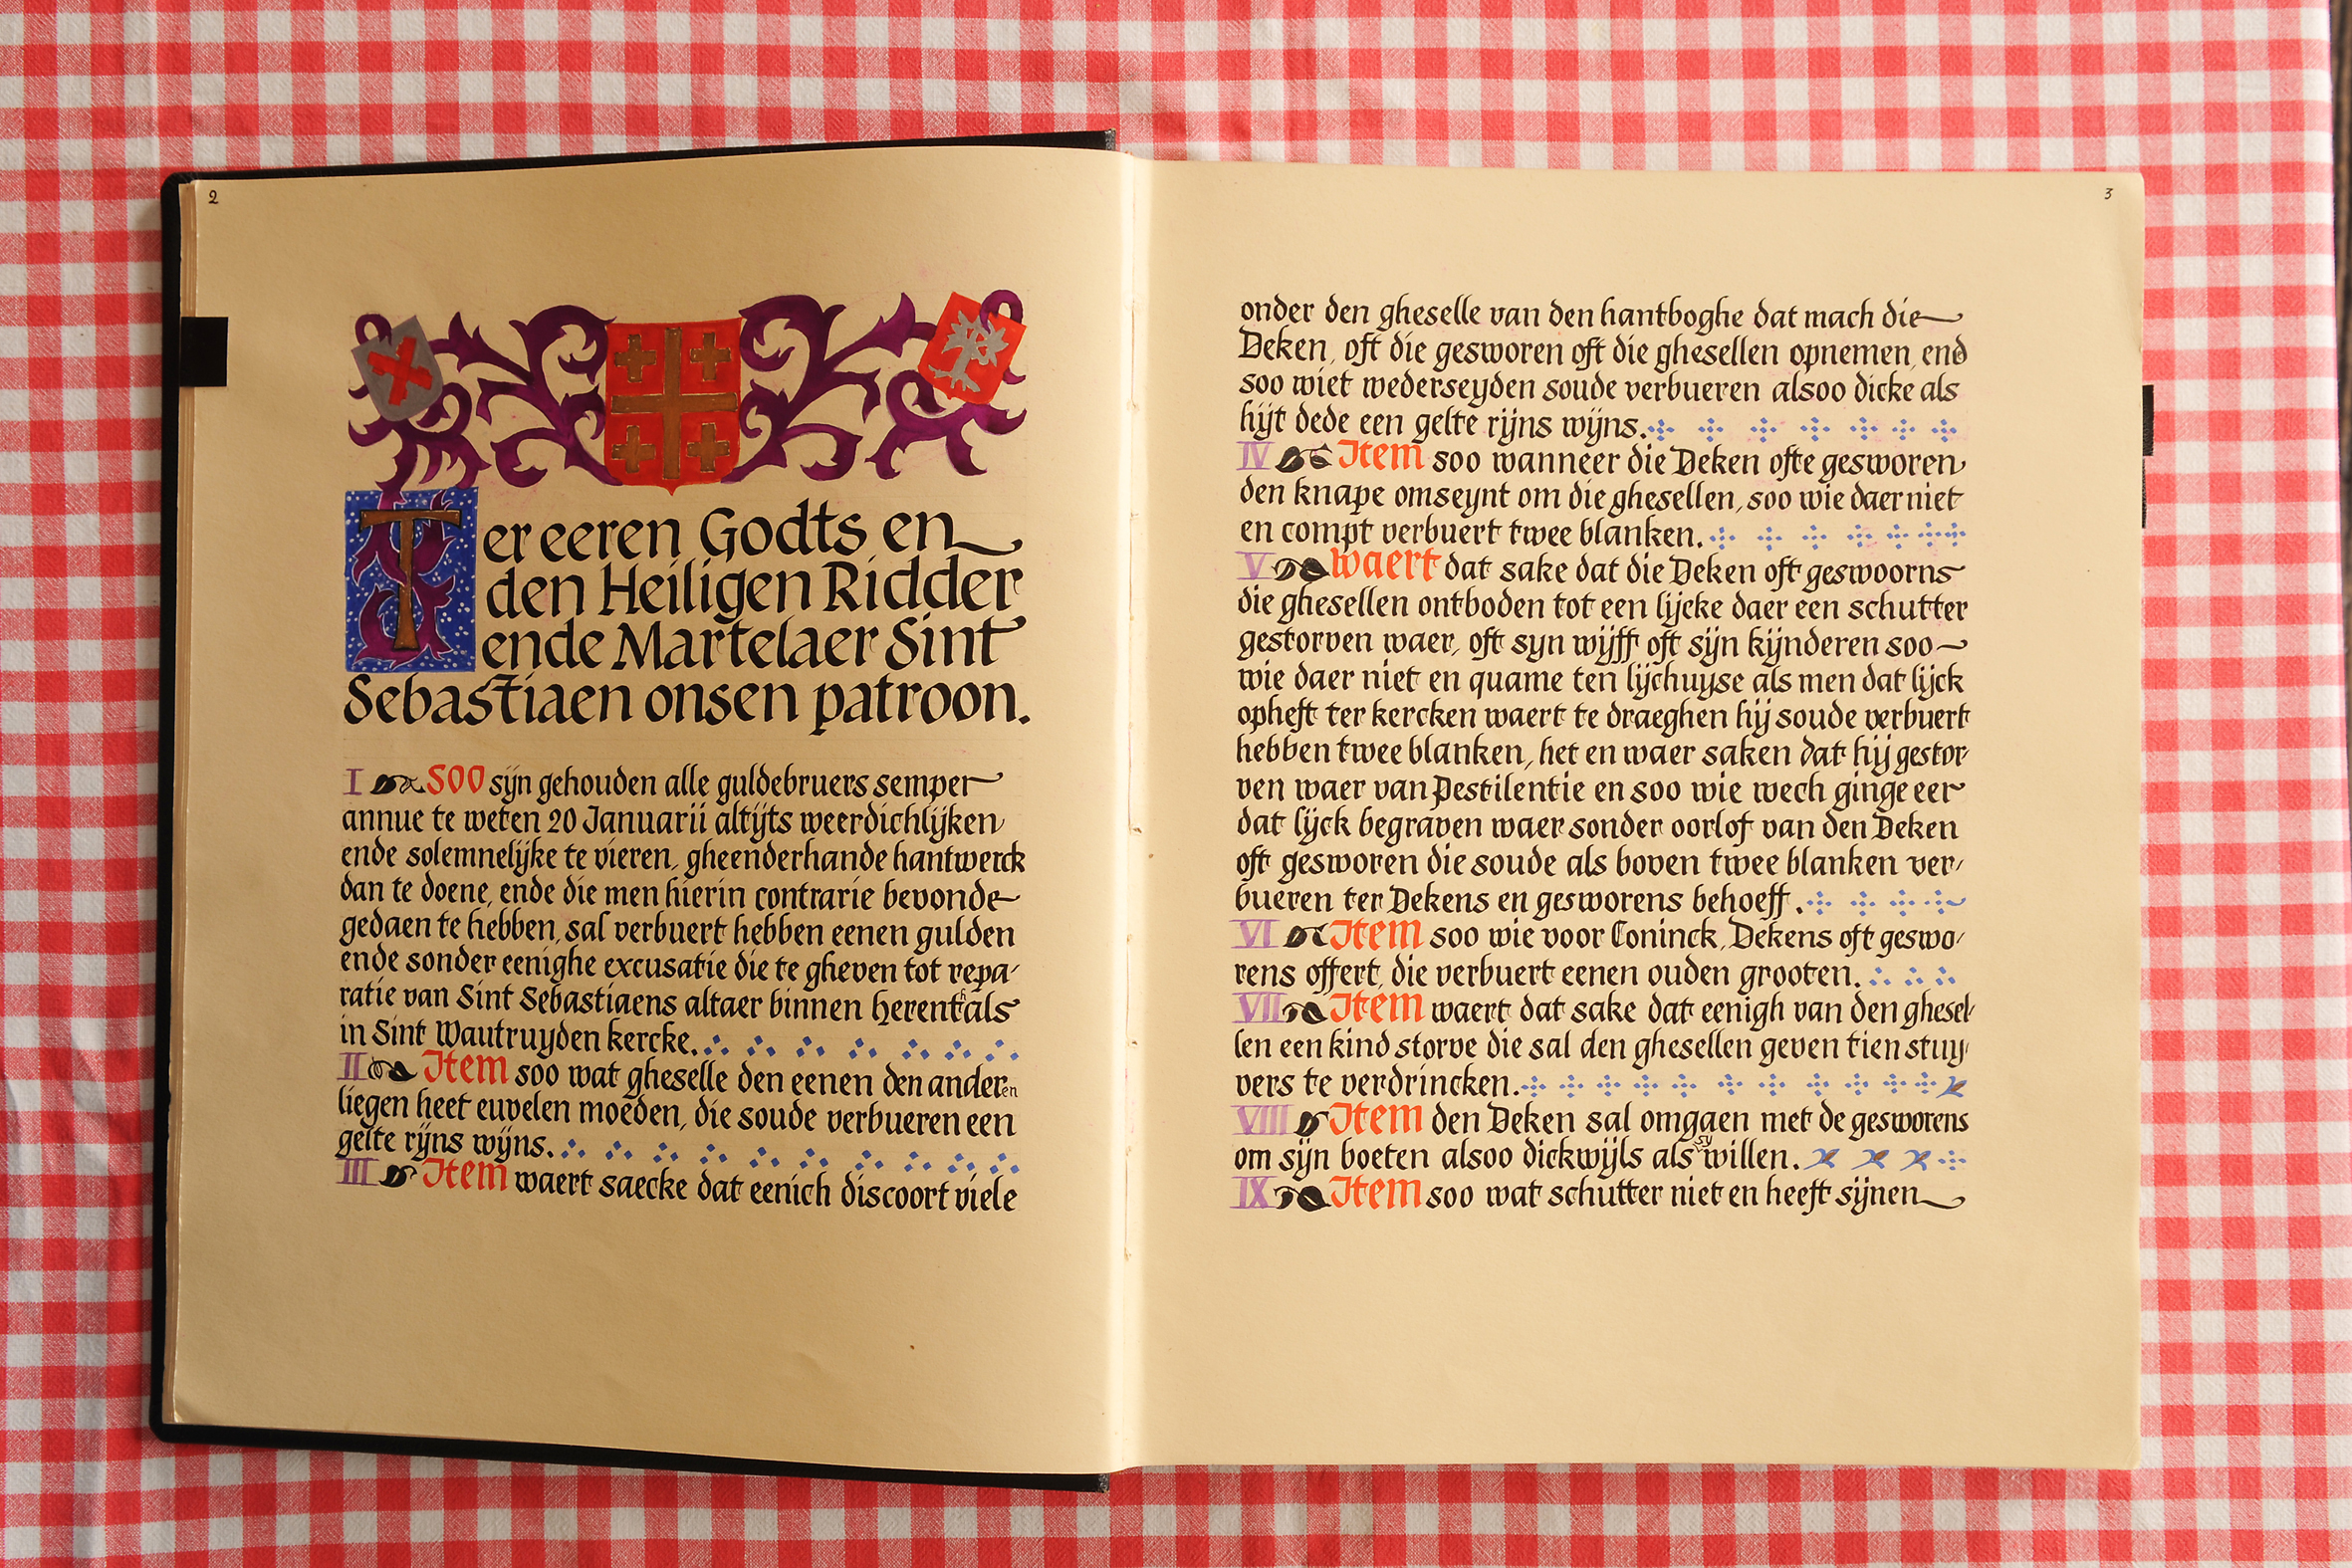 2
Ter eeren Godts en
den Heiligen Ridder
ende Martelaer Sint
Sebastiaen onsen patroon.
I Soo sijn gehouden alle guldebruers semper
annue te weten 20 Januarii altijts weerdichlijken
ende solemnelijke te vieren, gheenderhande hantwerck
dan te doene, ende die men hierin contrarie bevonde
gedaen te hebben, sal verbuert hebben eenen gulden
ende sonder eenighe excusatie die te gheven tot repa-
ratie van Sint Sebastiaens altaer binnen Herentals
in Sint Wautruyden kercke.
II Item soo wat gheselle den eenen den anderen
liegen heet euvelen moeden, die soude verbueren een
gelte rijns wijns.
III Item waert saecke dat eenich discoort viele
3
onder den gheselle van den hantboghe dat mach die
Deken, oft die gesworen oft die ghesellen opnemen, end
soo wiet wederseyden soude verbueren alsoo dicke als
hijt dede een gelte rijns wijns.
IV Item soo wanneer die Deken ofte gesworen
den knape omseynt om die ghesellen, soo wie daer niet
en compt verbuert twee blanken.
V Waert dat sake dat die Deken oft geswoorns
die ghesellen ontboden tot een lijcke daer een schutter
gestorven waer, oft syn wijff oft sijn kijnderen soo
wie daer niet en quame ten lijchuyse als men dat lijck
opheft ter kercken waert te draeghen hij soude verbuert
hebben twee blanken, het en waer saken dat hij gestor-
ven waer van Pestilentie en soo wie wech ginge eer
dat lijck begraven waer sonder oorlof van den Deken
oft gesworen die soude als boven twee blanken ver-
bueren ter Dekens en gesworens behoeff.
VI Item soo wie voor Coninck, Dekens oft geswo-
rens offert, die verbuert eenen ouden grooten.
VII Item waert dat sake dat eenigh van den ghesel-
len een kind storve die sal den ghesellen geven tien stuy-
vers te verdrincken.
VIII Item den Deken sal omgaen met de gesworens
om sijn boeten alsoo dickwijls als sy willen.
IX Item soo wat schutter niet en heeft sijnen